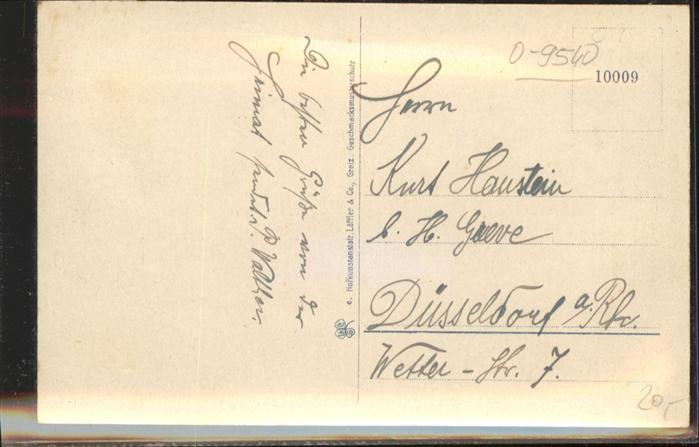 Die besten Grüße von der
Heimat sendet i. P. Walther.
e. Hofkunstanstalt Löffler & Co., Greiz. Geschmacksmusterschutz
0-9540
10009
Herrn
Kurt Haustein
b. H. Greve
Düsseldorf a/Rh.
Wetter-Str. 7.
20,-